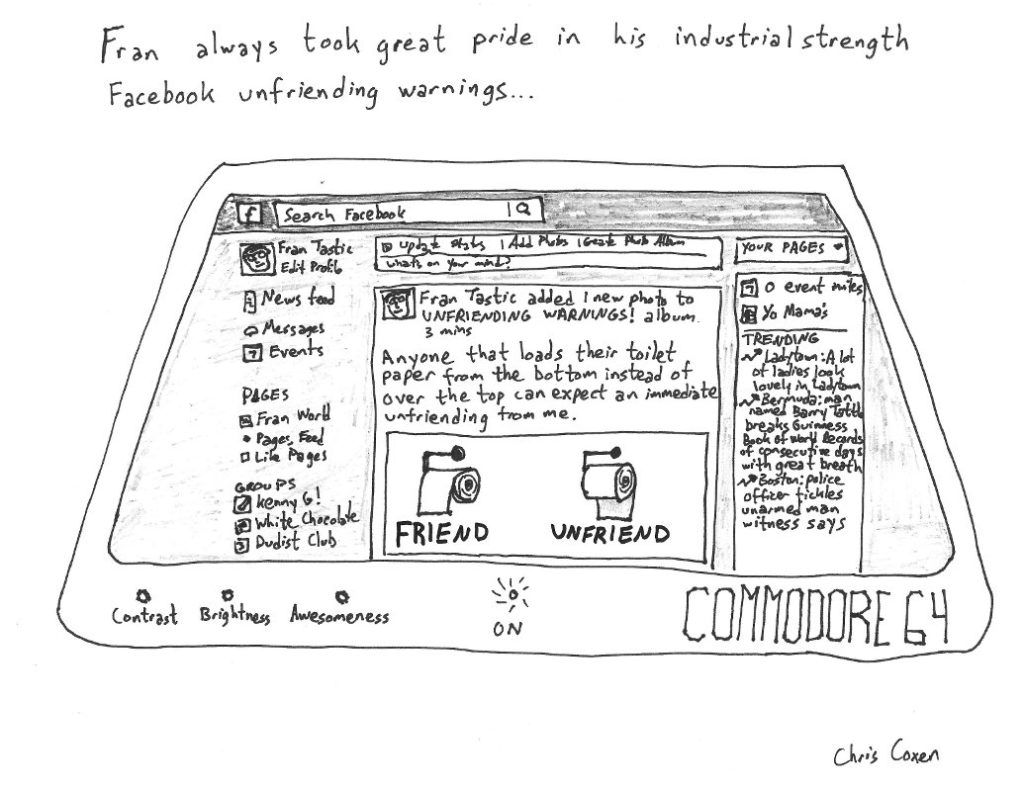 Fran always took great pride in his industrial strength
Facebook unfriending warnings...
f Search Facebook
Fran Tastic
Edit Profile
News feed
Messages
7 Events
PAGES
Fran World
Pages Feed
Like Pages
GROUPS
Kenny G!
White Chocolate
Dudist Club
Update Status | Add Photos | Create Photo Album
What's on your mind?
Fran Tastic added 1 new photo to
UNFRIENDING WARNINGS! album.
3 mins
Anyone that loads their toilet
paper from the bottom instead of
over the top can expect an immediate
unfriending from me.
FRIEND UNFRIEND
YOUR PAGES
7 0 event invites
Yo Mama's
TRENDING
Ladytown: A lot
of ladies look
lovely in Ladytown
Bermuda: man
named Barry Tottle
breaks Guinness
Book of World Records
of consecutive days
with great breath
Boston: police
officer tickles
unarmed man
witness says
Contrast Brightness Awesomeness
ON
COMMODORE 64
Chris Coxen